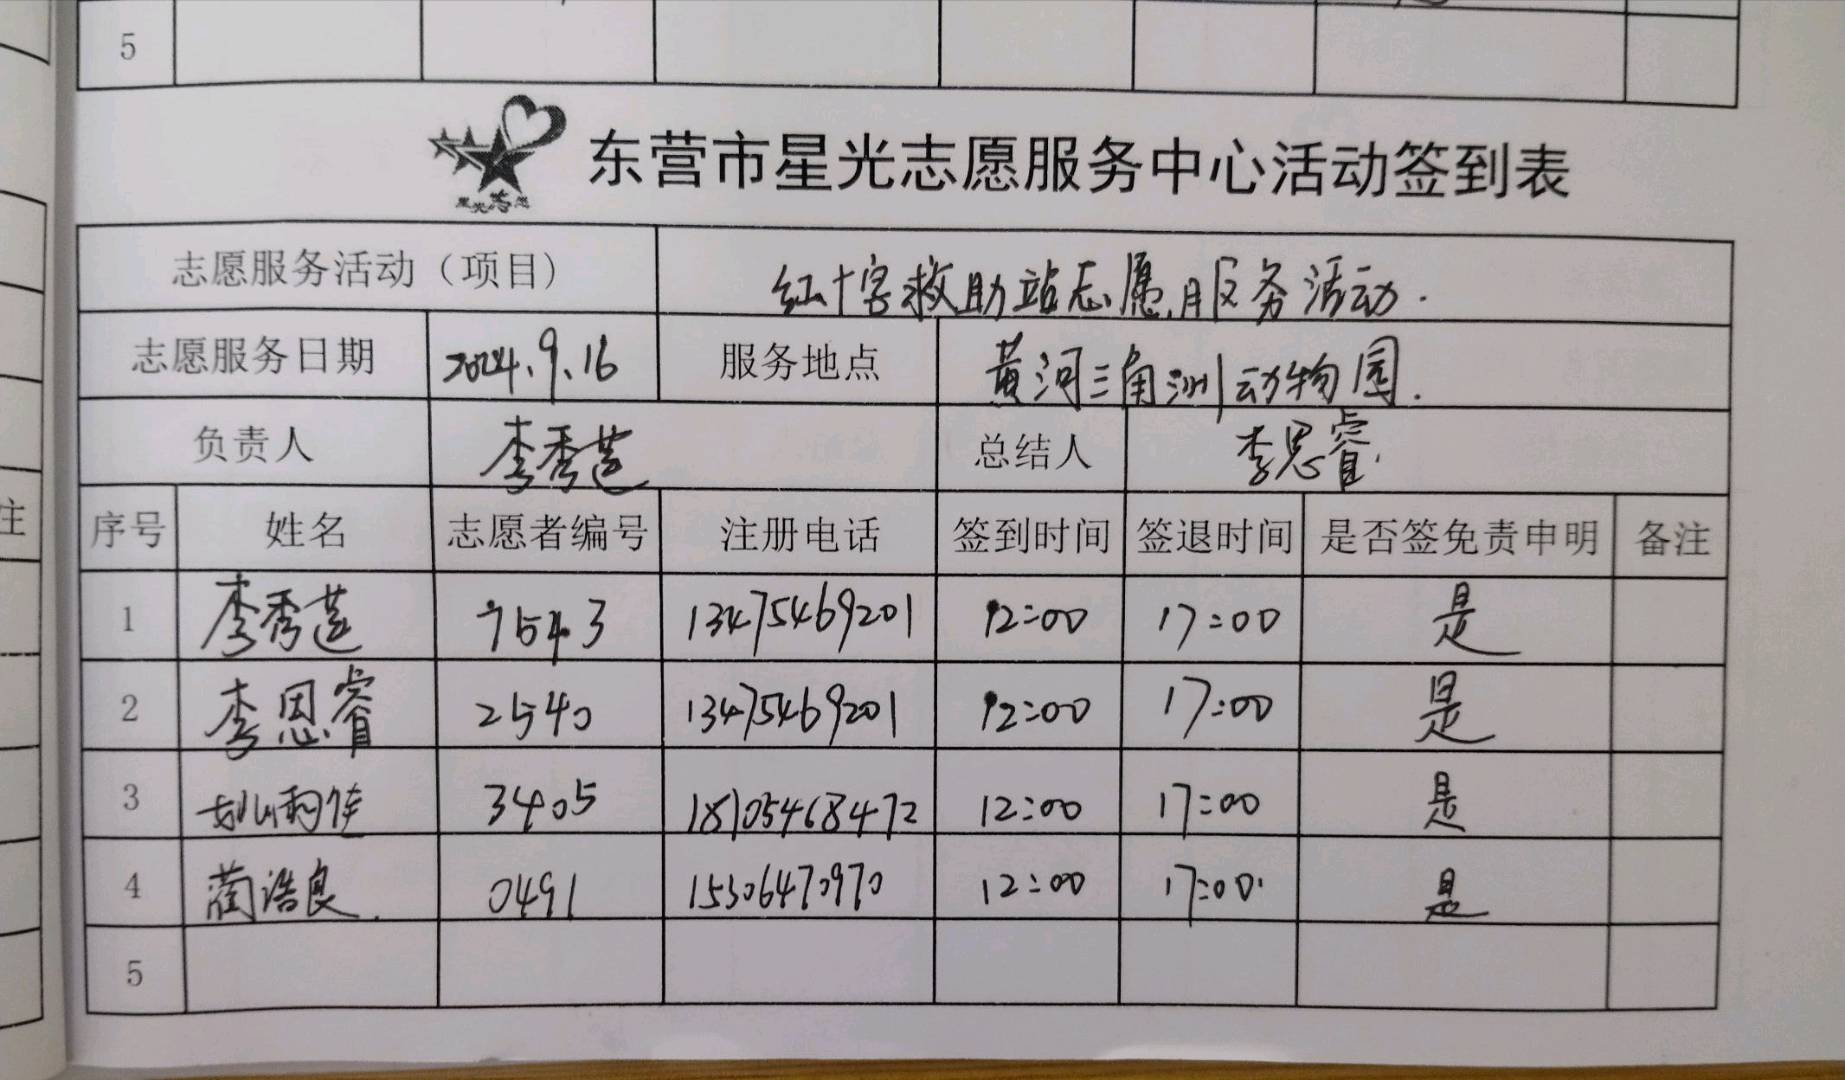 5
星光志愿
东营市星光志愿服务中心活动签到表
志愿服务活动（项目） 红十字救助站志愿服务活动.
志愿服务日期 2024.9.16 服务地点 黄河三角洲动物园.
负责人 李秀莲 总结人 李思睿
序号 姓名 志愿者编号 注册电话 签到时间 签退时间 是否签免责申明 备注
1 李秀莲 7543 13475469201 12:00 17:00 是
2 李思睿 2540 13475469201 12:00 17:00 是
3 3405 18705468472 12:00 17:00 是
4 蔺浩良. 0491 15306470970 12:00 17:00 是
5
注